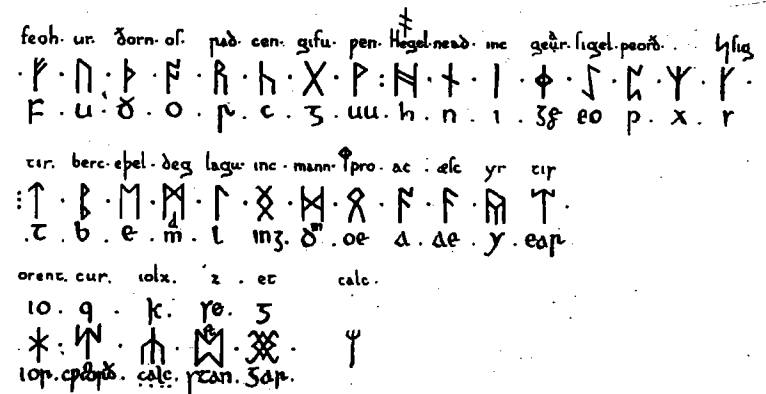 feoh· ur. ðorn· oſ. rad. cen. gifu· ƿen. Hegel·nead· inc geur· ſigel·peorð. . sig
·ᚠ·ᚢ·ᚦ·ᚩ·ᚱ·ᚳ·ᚷ·ᚹ:ᚻ·ᚾ·ᛁ·ᛄ·ᛇ·ᛈ·ᛉ·ᚴ·
F . u . ð . o . r . c . ᵹ . uu . h . n . ı . ᵹe eo p . x . ſ
tir. berc. eþel· deg lagu· inc · mann· pro· ac . æſc yr tir
⁝ᛏ·ᛒ·ᛖ·ᛗ·ᛚ·ᛝ·ᛞ·ᛟ·ᚪ·ᚫ·ᚣ·ᛠ·
.t . b . e . m . l . inᵹ. ð . oe . a . ae . y . ear
orent. cur. iolx. z . et calc.
io . q . k . ſt . ᵹ
ᛡ:ᛢ·ᛣ·ᛥ·ᚸ· ᛉ
ior. cƿeorð. calc. ſtan. ᵹar.